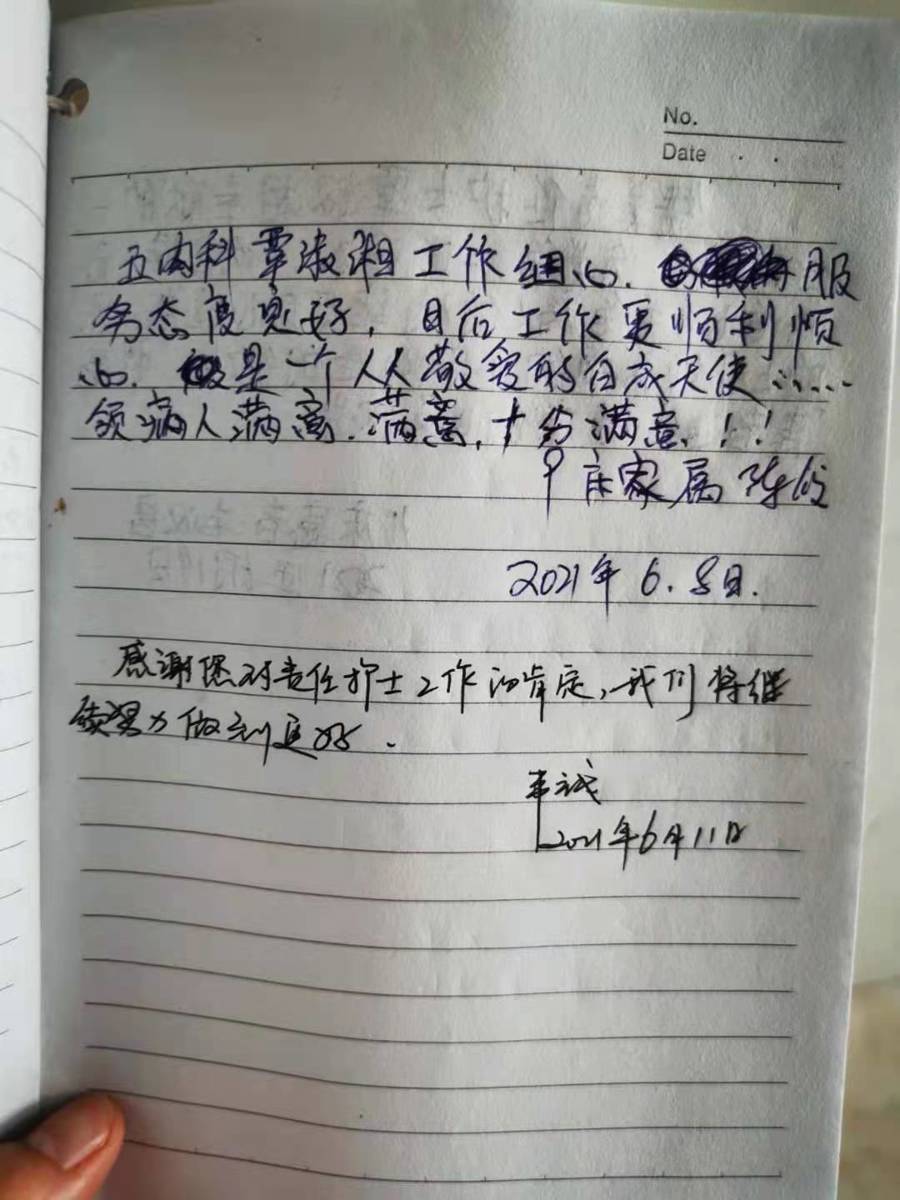 No.
Date
五内科覃淑湘工作细心.服
务态度见好,日后工作更顺利顺
心.是一个人人敬爱的白衣天使……
领病人满意.满意,十分满意!!
9床家属陈
2021年6.8日.
感谢您对责任护士工作的肯定,我们将继
续努力做到更好.
韦诚
2021年6月11日